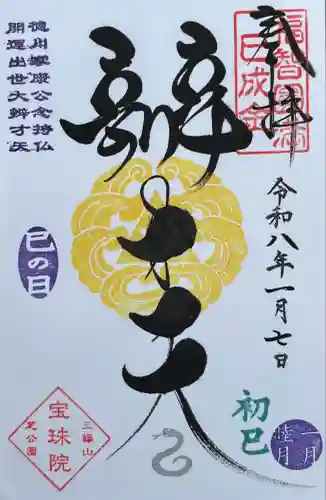 奉拝
福智円満
巳成金
令和八年一月七日
初巳
一月
睦月
辨才天
徳川家康公念持仏
開運出世大辨才天
巳の日
三縁山
宝珠院
芝公園